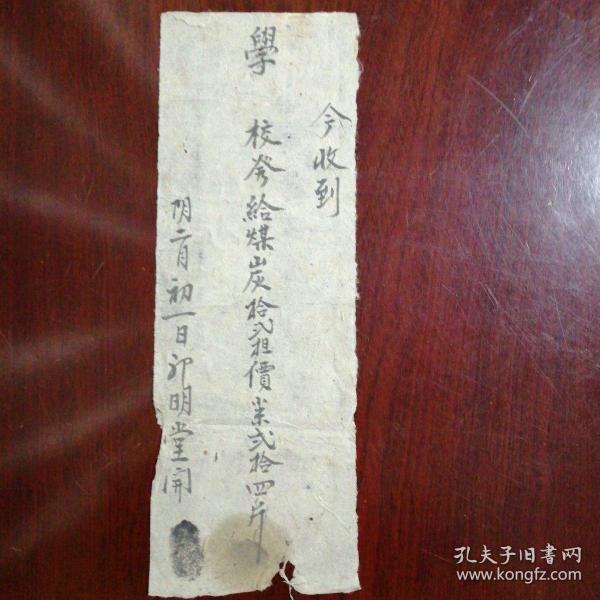 今收到
學
校發給煤炭拾弍担價米弍拾四斤
阴二月初一日 明堂開
孔夫子旧書网
www.kongfz.com